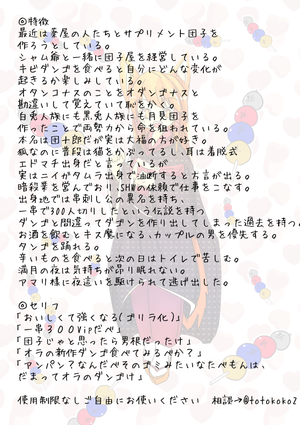 ◎特徴
最近は茶屋の人たちとサプリメント団子を
作ろうとしている。
シャム爺と一緒に団子屋を経営している。
キビダンゴを食べると自分にどんな変化が
起きるか楽しみしている。
オタンコナスのことをオダンゴナスと
勘違いして覚えていて恥をかく。
白兎人族にも黒兎人族にも月見団子を
作ったことで両勢力から命を狙われている。
本名は団十郎だが実は大福の方が好き。
狐なのに普段は猫をかぶってるし、耳は着脱式
エドマチ出身だと言っているが
実はニイガタムラ出身で油断すると方言が出る。
暗殺業を営んでおり、SHWの依頼で仕事をこなす。
出身地では串刺し公の異名を持ち、
一串で300人切りしたという伝説を持つ
ダンゴと間違ってダゴンを作り出してしまった過去を持つ。
お酒を飲むとキス魔になる、カップルの男を優先する。
タンゴを踊れる。
辛いものを食べると次の日はトイレで苦しむ。
満月の夜は気持ちが昂り眠れない。
アマリ様に夜這いを駆けられて逃げ出した。
◎セリフ
「おいしくて強くなる(ゴリラ化)」
「一串300Vipだべ」
「団子じゃと思ったら男根だったけ」
「オラの新作ダンゴ食べてみるべか?」
「アンパン?なんだべそのゴミみたいなたべもんは、
だまってオラのダンゴけ」
使用制限なしご自由にお使いください 相談→@totokoko2